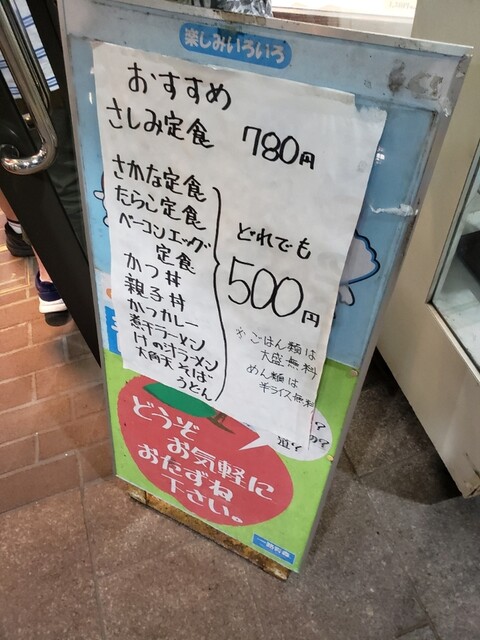 楽しみいろいろ
おすすめ
さしみ定食 780円
さかな定食
たらこ定食
ベーコンエッグ
定食
かつ丼
親子丼
かつカレー
煮干ラーメン
けの汁ラーメン
大角天そば
うどん
どれでも
500円
※ごはん類は
大盛無料
めん類は
半ライス無料
どうぞ
お気軽に
おたずね
下さい。